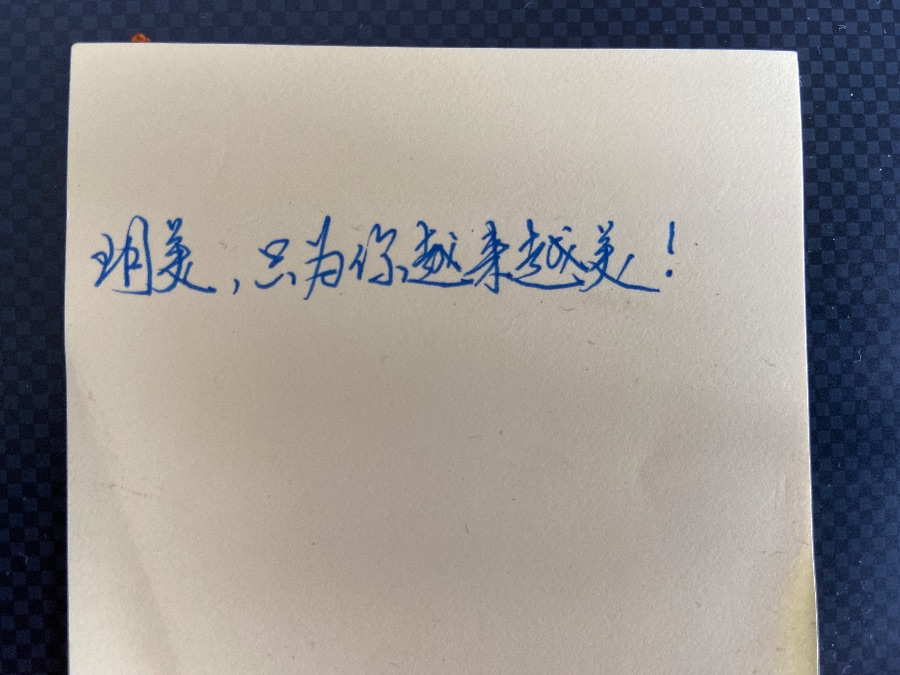 玥美,只为你越来越美!